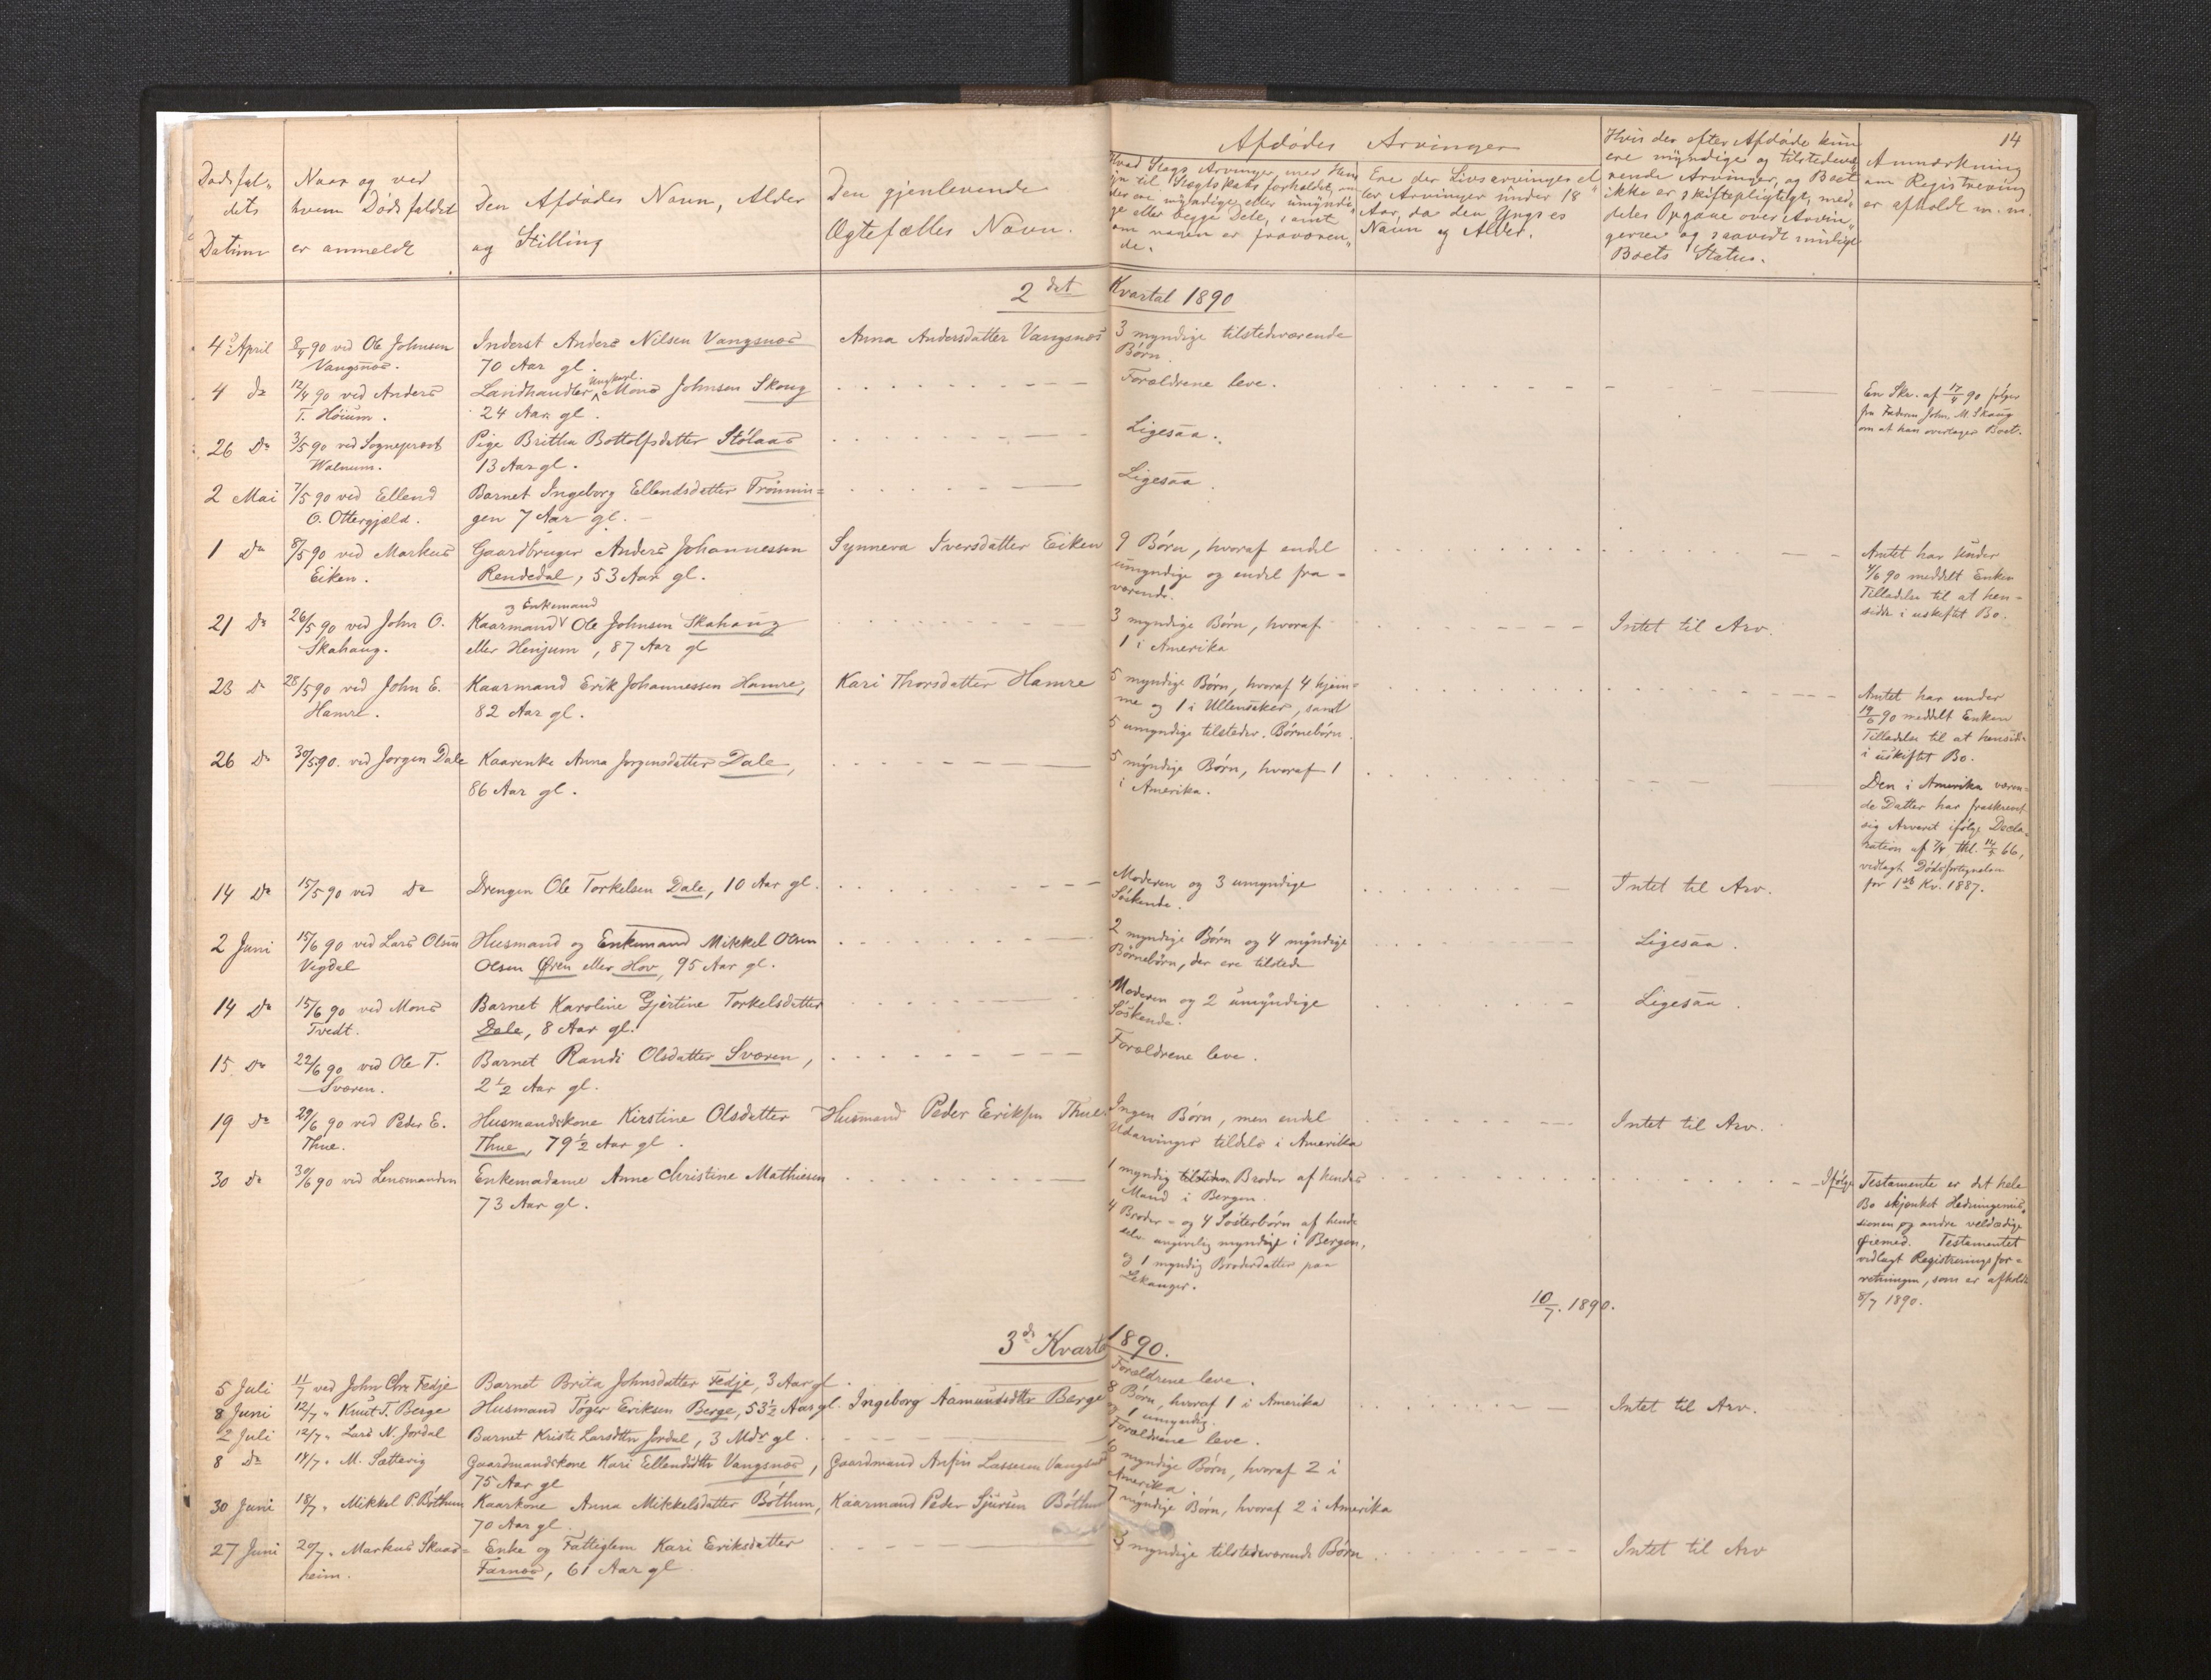 14
Dødsfal-
dets
Datum
Naar og ved
hvem Dødsfaldet
er anmeldt
Den Afdødes Navn, Alder
og Stilling
Den gjenlevende
Ægtefælles Navn.
Afdødes Arvinger
Hvad Slags Arvinger, med Hen
syn til Slægtskabsforholdet, om
der ere myndige eller umyndi-
ge eller begge Dele, samt
om nogen er fraværen-
de.
Ere der Livsarvinger el
ler Arvinger under 18
Aar, da den Yngstes
Navn og Alder.
Hvis der efter Afdøde kun
ere myndige og tilstedevæ-
rende Arvinger, og Boet
ikke er skiftepligtigt, med-
deles Opgave over Arvin-
gerne og saavidt muligt
Boets Status.
Anmærkning
om Registrering
er afholdt m. m.
2det Kvartal 1890
4 April 8/4 90 ved Ole Johnsen Inderst Anders Nilsen Vangsnæs Anna Andersdatter Vangsnæs 3 myndige tilstedeværende
Vangsnæs. 70 Aar gl. Børn.
4 do 12/4 90 ved Anders Landhandler, Ungkarl. Mons Johnsen Skoug Forældrene leve. En Skr. af 17/4 90 følger
T. Høium. 24 Aar gl. fra Faderen John M. Skaug
om at han overtager Boet.
26 Do 3/5 90 ved Sogneprest Pige Britha Bottolfsdatter Stølaas Ligesaa.
Walnum. 13 Aar gl.
2 Mai 7/5 90 ved Ellend Barnet Ingeborg Ellendsdatter Trønnin= Ligesaa.
O. Ottergjæld. gen 7 Aar gl. -
1 Do 8/5 90 ved Markus Gaardbruger Anders Johannessen Synneva Iversdatter Eiken 9 Børn, hvoraf endel Amtet har under
Eiken. Rendedal, 53 Aar gl. umyndige og endel fra- 4/6 90 meddelt Enken
værende. Tilladelse til at hen-
sidde i uskiftet Bo.
21 Do 26/5 90 ved John O. Kaarmand og Enkemand Ole Johnsen Skahaug 3 myndige Børn, hvoraf Intet til Arv.
Skahaug. eller Henjum, 87 Aar gl 1 i Amerika
23 Do 28/5 90 ved John E. Kaarmand Erik Johannessen Hamre, Kari Thorsdatter Hamre 5 myndige Børn, hvoraf 4 hjem- Amtet har under
Hamre. 82 Aar gl. me og 1 i Ullensaker, samt 19/6 90 meddelt Enken
5 umyndige tilsteder. Børnebørn. Tilladelse til at hensidde
i uskiftet Bo.
26 Do 30/5 90. ved Jørgen Dale Kaarenke Anna Jørgensdatter Dale, 5 myndige Børn, hvoraf 1 Den i Amerika væren-
86 Aar gl. i Amerika. de Datter har fraskrevet
sig Arveret ifølge Decla-
ration af thl. 66,
vedlagt Dødsfortegnelsen
for 1ste Kv. 1887.
14 Do 15/5 90 ved Do Drengen Ole Torkelsen Dale, 10 Aar gl. Moderen og 3 umyndige Intet til Arv.
Søskende.
2 Juni 15/6 90 ved Lars Olsen Husmand og Enkemand Mikkel Olsen 2 myndige Børn og 4 myndige Ligesaa.
Vigdal Olsen Øren eller Hov, 95 Aar gl. Børnebørn, der ere tilstede
14 Do 15/6 90 ved Mons Barnet Karoline Gjertine Torkelsdatter Moderen og 2 umyndige Ligesaa.
Tvedt. Dale, 8 Aar gl. Søskende.
15 Do 22/6 90 ved Ole T. Barnet Randi Olsdatter Sværen, Forældrene leve.
Sværen. 2 1/2 Aar gl.
19 Do 29/6 90 ved Peder E. Husmandskone Kirstine Olsdatter Husmand Peder Eriksen Thue. Ingen Børn, men endel Intet til Arv.
Thue. Thue, 79 1/2 Aar gl. Udarvinger tildels i Amerika
30 Do 30/6 90 ved Lensmanden Enkemadame Anne Christine Mathiesen 1 myndig tilsteder Broder af hendes Ifølge Testamente er det hele
73 Aar gl. Mand i Bergen. Bo skjænket Hedningemis-
4 Broder- og 4 Søsterbørn af hende sionen og andre veldædige
selv angivelig myndige i Bergen, Øiemed. Testamentet
og 1 myndig Broderdatter paa vedlagt Registreringsfor-
Lekanger. retningen, som er afholdt
10/7. 1890. 8/7 1890.
3d Kvartal 1890.
5 Juli 11/7 ved John Chr Fedje Barnet Brita Johnsdatter Fedje, 3 Aar gl. Forældrene leve.
8 Juni 12/7 " Knut T. Berge Husmand Tøger Eriksen Berge, 53 1/2 Aar gl. Ingeborg Aamundsdtr Berge 8 Børn, hvoraf 1 i Amerika Intet til Arv.
og 1 umyndig.
2 Juli 12/7 " Lars N. Jordal Barnet Kristi Larsdttr Jordal, 3 Mdr gl. Forældrene leve.
8 Do 14/7 " M. Sættevig Gaardmandskone Kari Ellendsdtr Vangsnæs, Gaardmand Anfin Lassesen Vangsnæs 6 myndige Børn, hvoraf 2 i
75 Aar gl Amerika.
30 Juni 18/7 " Mikkel P. Bøthum Kaarkone Anna Mikkelsdatter Bøthum, Kaarmand Peder Sjursen Bøthum 7 myndige Børn, hvoraf 2 i Amerika
70 Aar gl.
27 Juni 20/7 " Markus Skaar= Enke og Fattiglem Kari Eriksdatter 3 myndige tilstedeværende Børn. Intet til Arv
heim. Farnæs, 61 Aar gl.